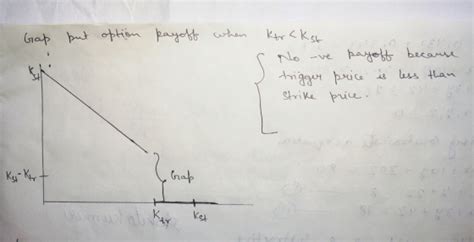 Gap put option payoff when Ktr < Kst
No -ve payoff because
trigger price is less than
strike price.
Kst
Kst - Ktr
Gap
Ktr
Kst